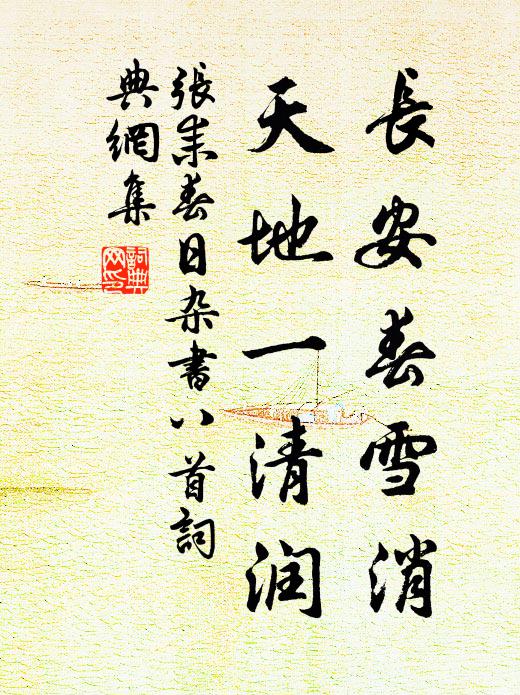 長安春雪消
天地一清润
張耒春日杂書八首詞
典網集
詞典
网印